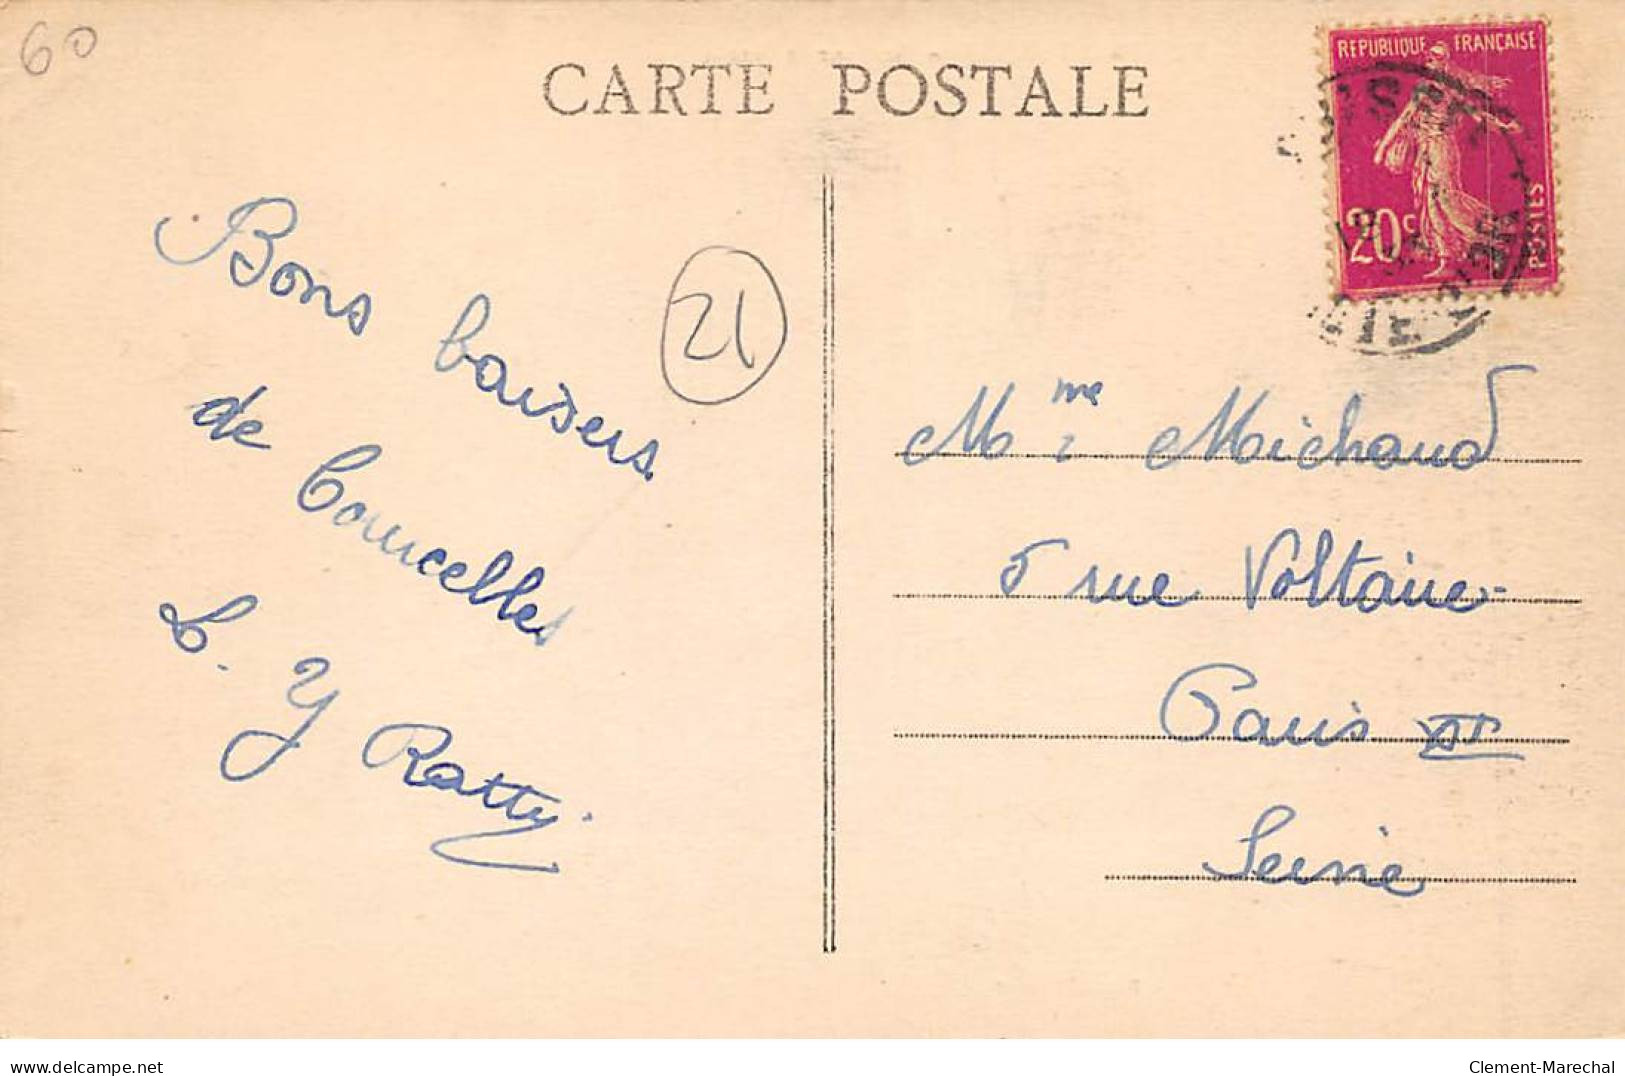 60
CARTE POSTALE
REPUBLIQUE FRANÇAISE
20c
POSTES
21
Bons baisers
de Courcelles
L. Y Ratty.
Mme Michaud
5 rue Voltaire
Paris XI
Seine
www.delcampe.net
Clement-Marechal